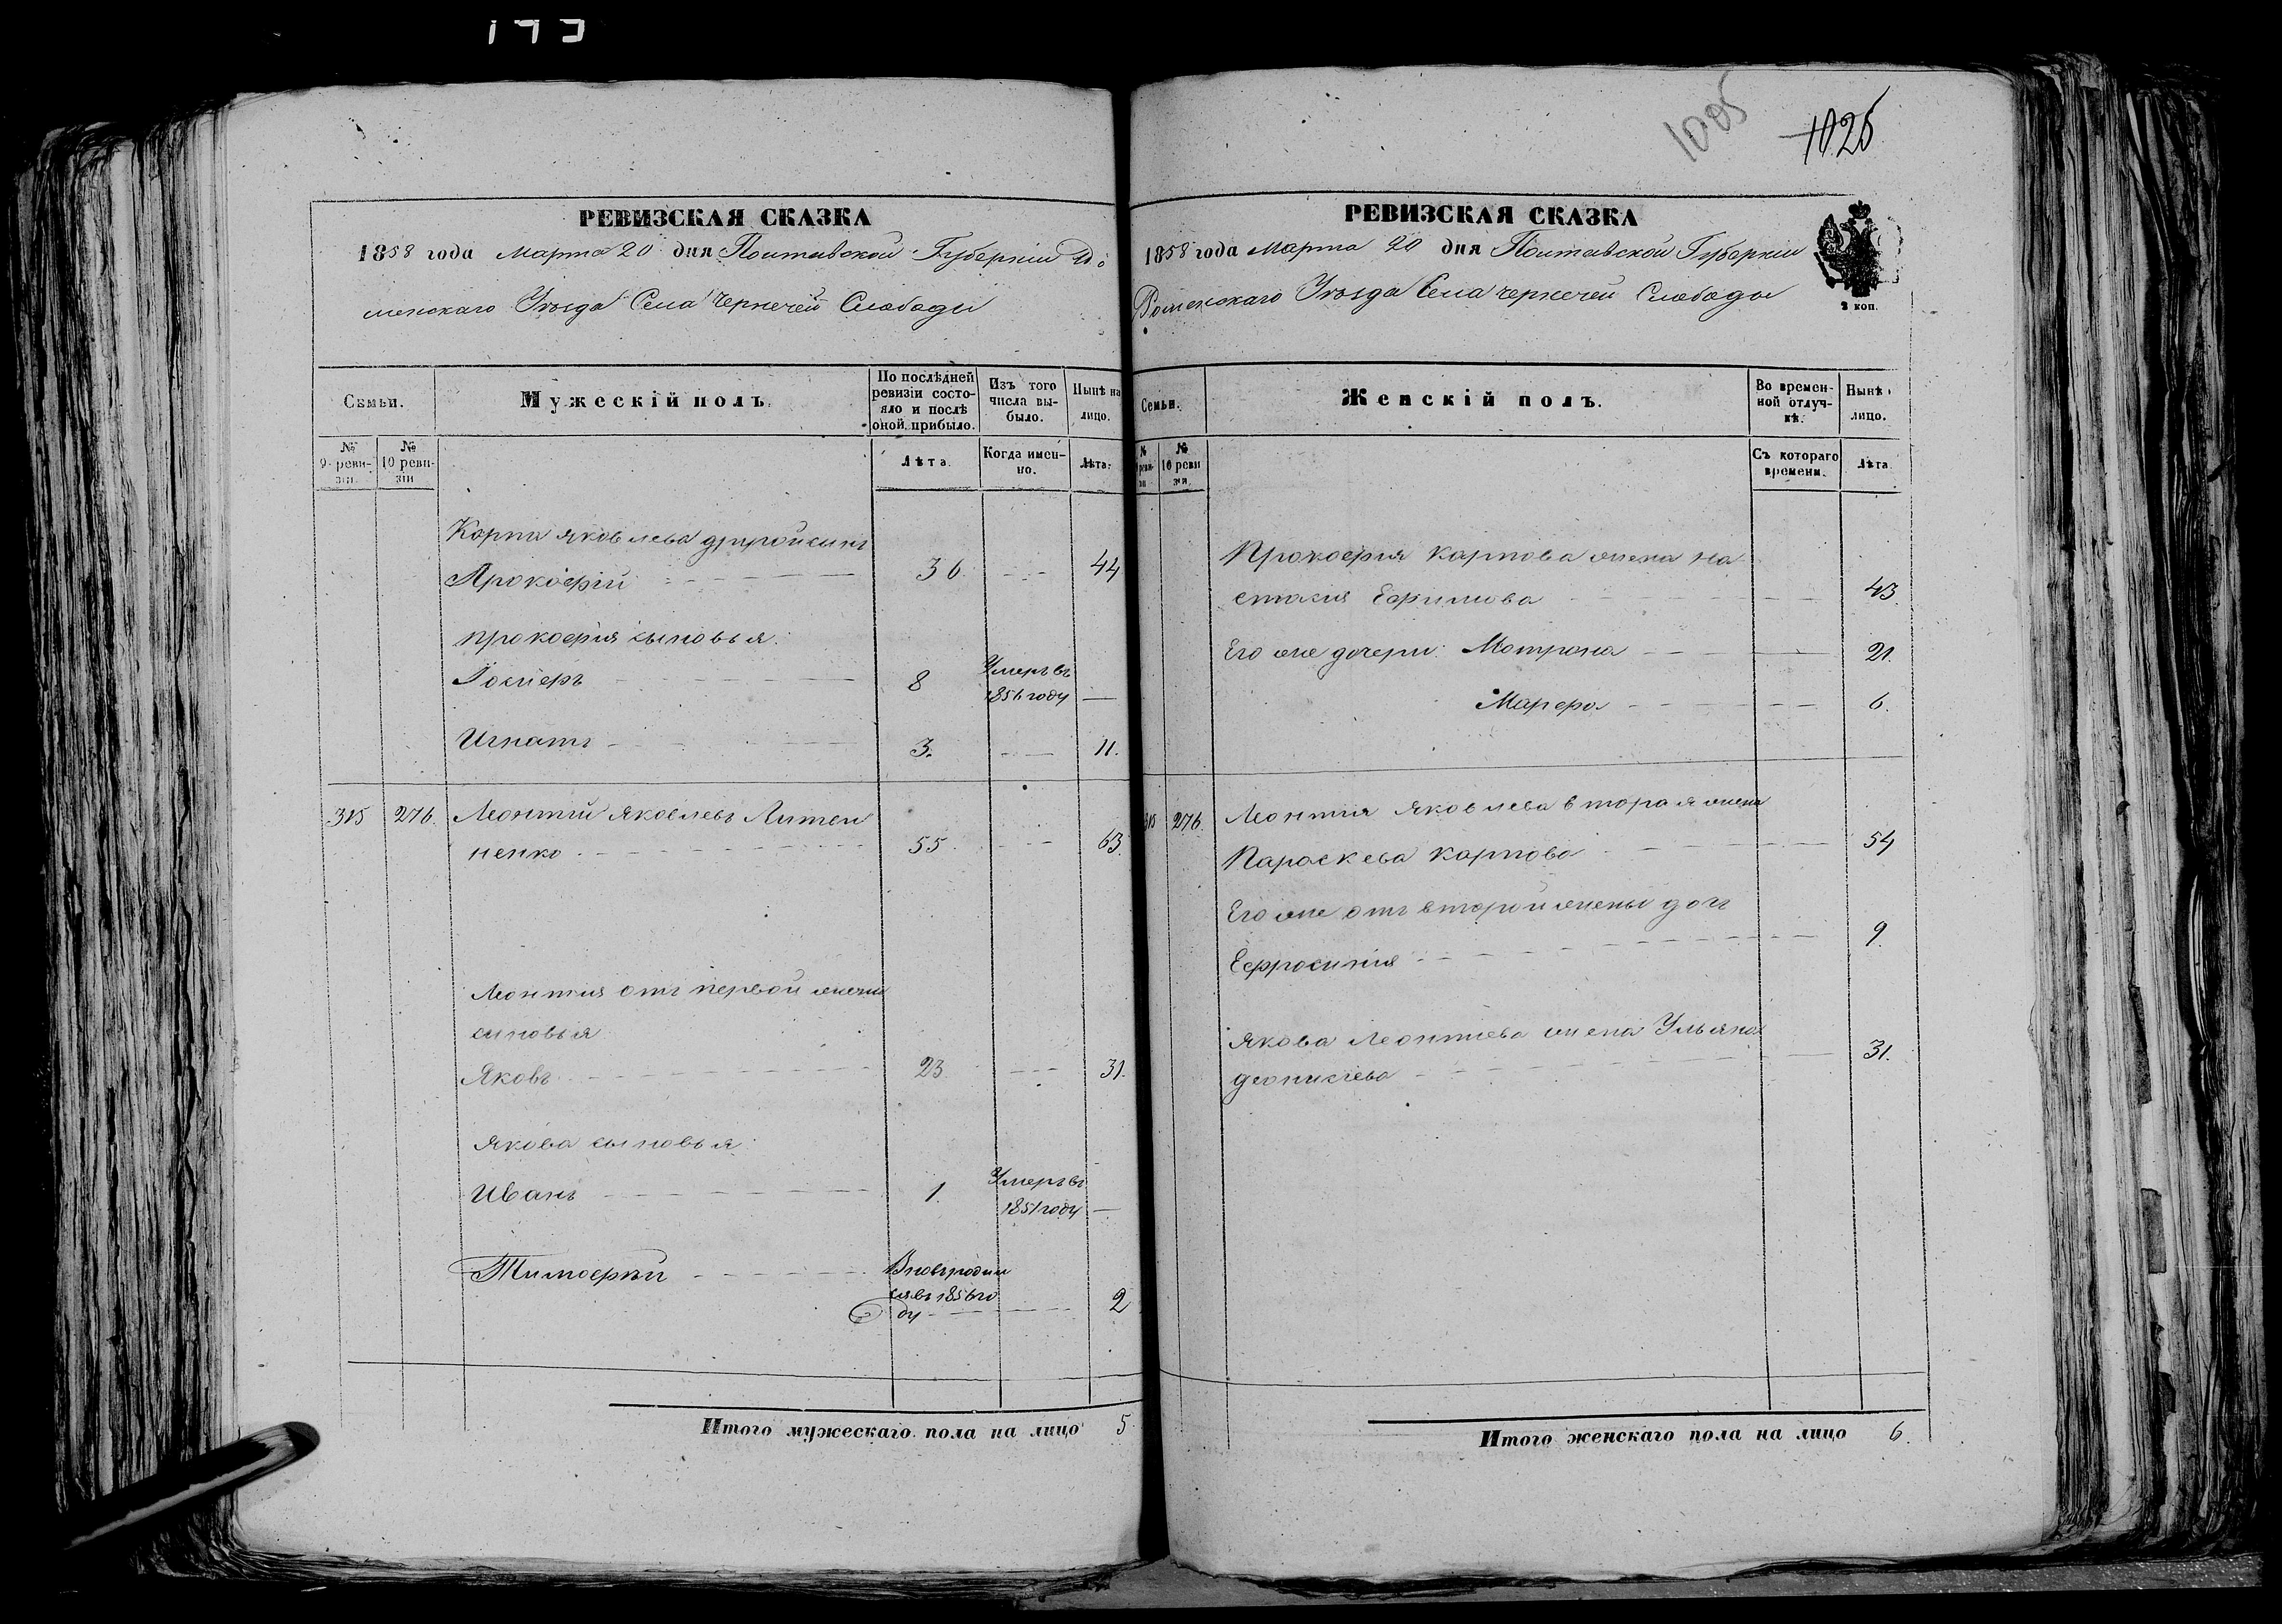 1005
1026
РЕВИЗСКАЯ СКАЗКА
1858 года Марта 20 дня Полтавской Губерніи Ро
менскаго Уезда Села Чернечей Слободы
Семьи.
Мужескій полъ.
По послѣдней ревизіи состояло и послѣ оной прибыло.
Изъ того числа выбыло.
Нынѣ на лицо.
№ 9 ревизіи.
№ 10 ревизіи
Лѣта.
Когда именно.
Лѣта.
Карпа Яковлева другой сынъ
Прокофій 36 44
Прокофія сыновья:
8 Умеръ въ
1856 году
Игнатъ 3. 11.
315 276. Леонтій Яковлевъ Литви
ненко 55 63.
Леонтія отъ первой жены
сыновья
Яковъ 23 31.
Якова сыновья:
Иванъ 1. Умеръ въ
1851 году
Тимофѣй Вновь родил
ся въ 1856 го
ду 2
Итого мужескаго пола на лицо 5
РЕВИЗСКАЯ СКАЗКА
1858 года Марта 20 дня Полтавской Губерніи
Роменскаго Уезда Села Чернечей Слободы
2 коп.
Семьи.
Женскій полъ.
Во временной отлучкѣ.
Нынѣ
лицо.
№ ревизіи
№ 10 ревизіи.
Съ котораго времени.
Лѣта.
Прокофія Карпова жена На
стасия Ефимова 43.
Его же дочери: Мотрона 21.
Марфа 6.
315 276. Леонтия Яковлева вторая жена
Параскева Карпова 54
Его же отъ второй жены дочь
Ефросинія 9.
Якова Леонтиева жена Ульяна
31.
Итого женскаго пола на лицо 6.